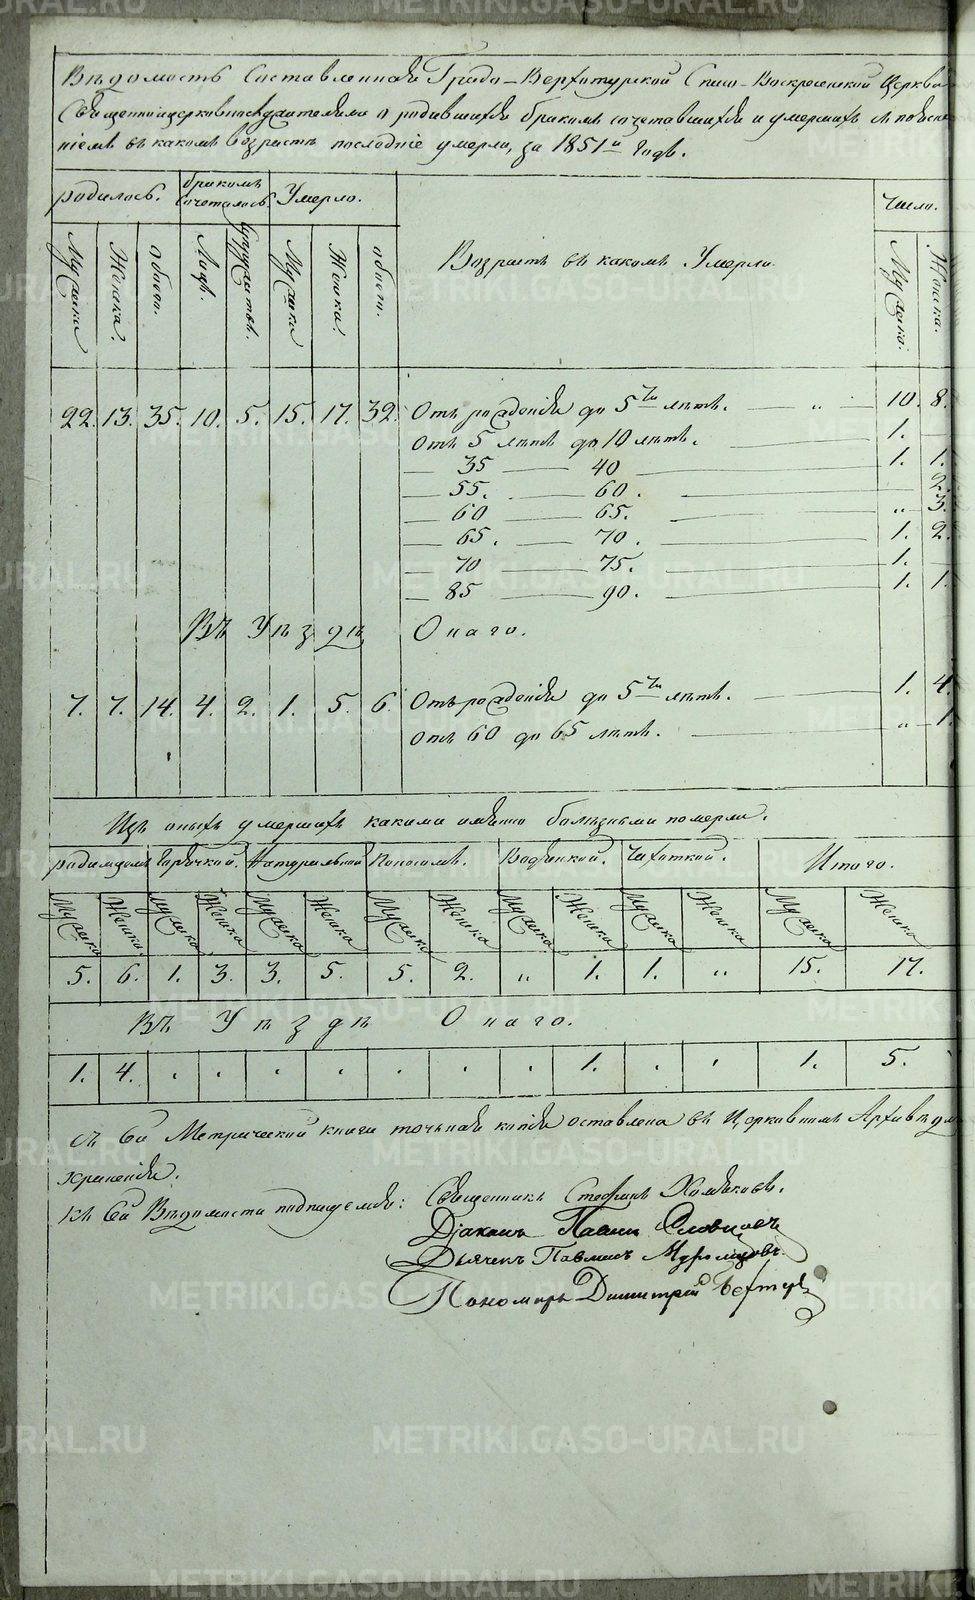 Вѣдомость составленная Градо-Верхотурской Спасо-Воскресенской Церкви
Священноцерковнослужителями о родившихся бракомъ сочетавшихся и умершихъ съ поясне
ніемъ въ какомъ возрастѣ послѣдніе умерли, за 1851й годъ.
родилось. бракомъ сочеталось. Умерло. Возрастъ въ какомъ Умерли. Число.
Мужска Женска. обоего. Лицъ. Супружествъ. Мужска Женска. обоего. Мужска. Женска.
22. 13. 35. 10. 5. 15. 17. 32. Отъ рожденія до 5ти лѣтъ. — „ 10. 8.
Отъ 5 лѣтъ до 10 лѣтъ. — 1.
— 35 — 40 — 1. 1.
— 55. — 60. — 2.
— 60 — 65. — „ 3.
— 65. — 70. — 1. 2.
— 70 — 75. — 1.
— 85 — 90. — 1. 1.
Въ Уѣздѣ Онаго.
7. 7. 14. 4. 2. 1. 5. 6. Отъ рожденія до 5ти лѣтъ. — 1. 4.
Отъ 60 до 65 лѣтъ. — „ 1.
Изъ оныхъ умершихъ какими именно болѣзньми померли.
родимцомъ Горячкой. Натуральной Поносомъ. Водянкой. Чахоткой. Итого.
Мужска Женска. Мужска Женска Мужска Женска Мужска Женска Мужска Женска Мужска Женска Мужска Женска
5. 6. 1. 3. 3. 5. 5. 2. „ 1. 1. „ 15. 17.
Въ Уѣздѣ Онаго.
1. 4. . . . . . . . 1. . . 1. 5.
съ сей Метрической книги точная копія оставлена въ Церковномъ Архивѣ для
храненія.
къ сей Вѣдомости подписуемся: Священникъ Стефанъ Хомяковъ.
Діаконъ Павелъ Словцовъ
Дьячекъ Павлинъ Муромцовъ.
Пономарь Димитрій
METRIKI.GASO-URAL.RU